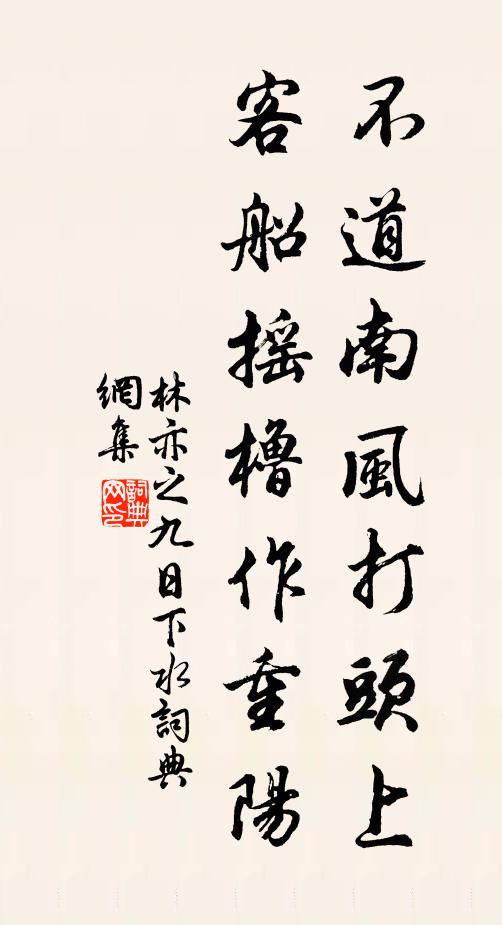 不道南風打頭上
客船摇櫓作重陽
林亦之九日下水詞典
網集
詞典
网印